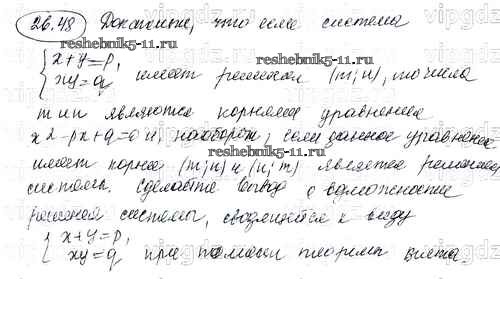 26.48 Докажите, что если система
reshebnik5-11.ru
{ x+y=p,
xy=q имеет решения (m;n), то числа
m и n являются корнями уравнения
x2-px+q=0 и, наоборот, если данное уравнение
reshebnik5-11.ru
имеет корни (m;n) и (n;m) является решением
системы. Сделайте вывод о возможности
решения системы, сводящейся к виду
reshebnik5-11.ru
{ x+y=p,
xy=q при помощи теоремы Виета.